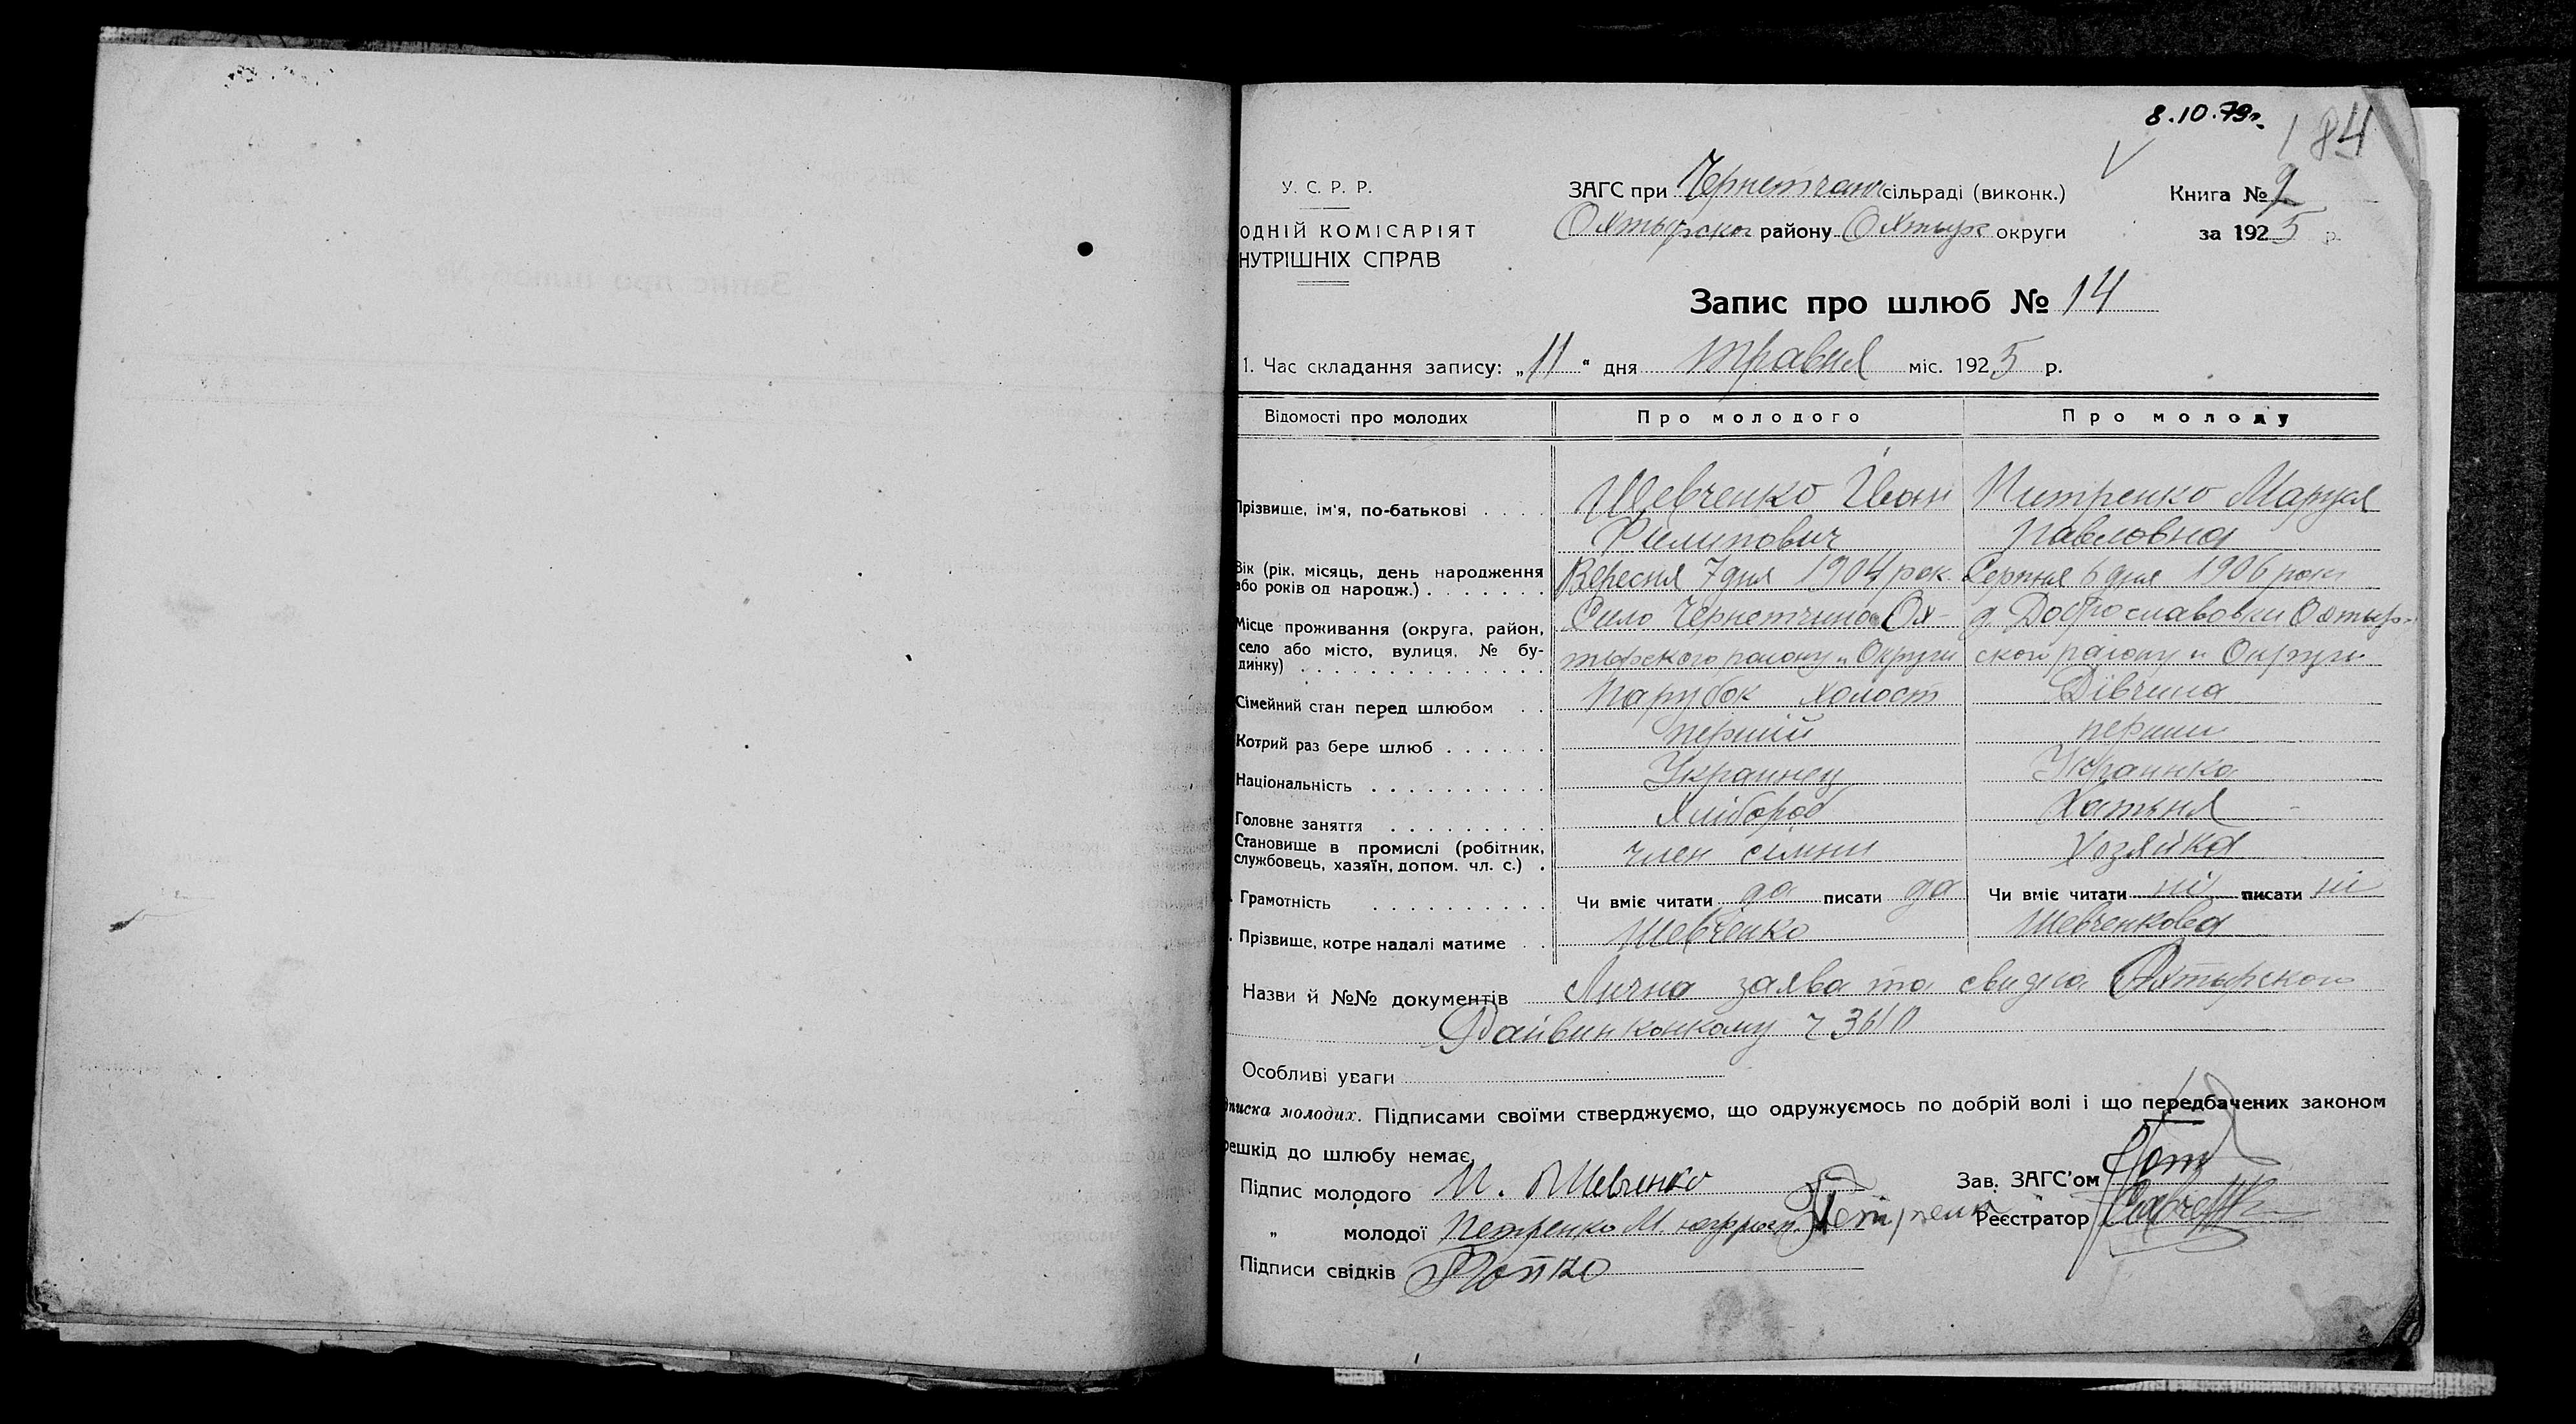 8.10.79г.
184
У. С. Р. Р.
ЗАГС при Чернетчани сільраді (виконк.)
Книга № 2
ОДНІЙ КОМІСАРІЯТ
Охтырског району Охтыр округи
за 1925 р.
НУТРІШНІХ СПРАВ
Запис про шлюб № 14
1. Час складання запису: „11“ дня травня міс. 1925 р.
Відомості про молодих Про молодого Про молоду
Прізвище, ім'я, по-батькові . . . . Шевченко Іван Питренко Маруся
Филипович Павловна
Вік (рік, місяць, день народження Вересня 7 дня 1904 рок Серпня 6 дня 1906 року
або років од народж.) . . . . . . .
Місце проживання (округа, район, Сило Чернетчина Ох- д. Доброславовки Охтыр-
село або місто, вулиця, № бу- тырского району и Округи ского району и Округи
динку) . . . . . . . . . . . . .
Сімейний стан перед шлюбом . . Парубок холост Дівчина
Котрий раз бере шлюб . . . . . . перший перший
Національність . . . . . . . . . . Украинец Украинка
Головне заняття . . . . . . . . . Хлібороб Хатьня
Становище в промислі (робітник, член сімни Хозяйка
службовець, хазяїн, допом. чл. с.) .
. Грамотність . . . . . . . . . . Чи вміє читати да писати да Чи вміє читати ні писати ні
. Прізвище, котре надалі матиме . . Шевченко Шевченкова
Назви й №№ документів Лична заява та свидка Охтырского
Райвинконкому ч 3610
Особливі уваги
дписка молодих. Підписами своїми стверджуємо, що одружуємось по добрій волі і що передбачених законом
решкід до шлюбу немає.
Підпис молодого И. Шевченко Зав. ЗАГС'ом
„ молодої Петренко М. Реєстратор
Підписи свідків